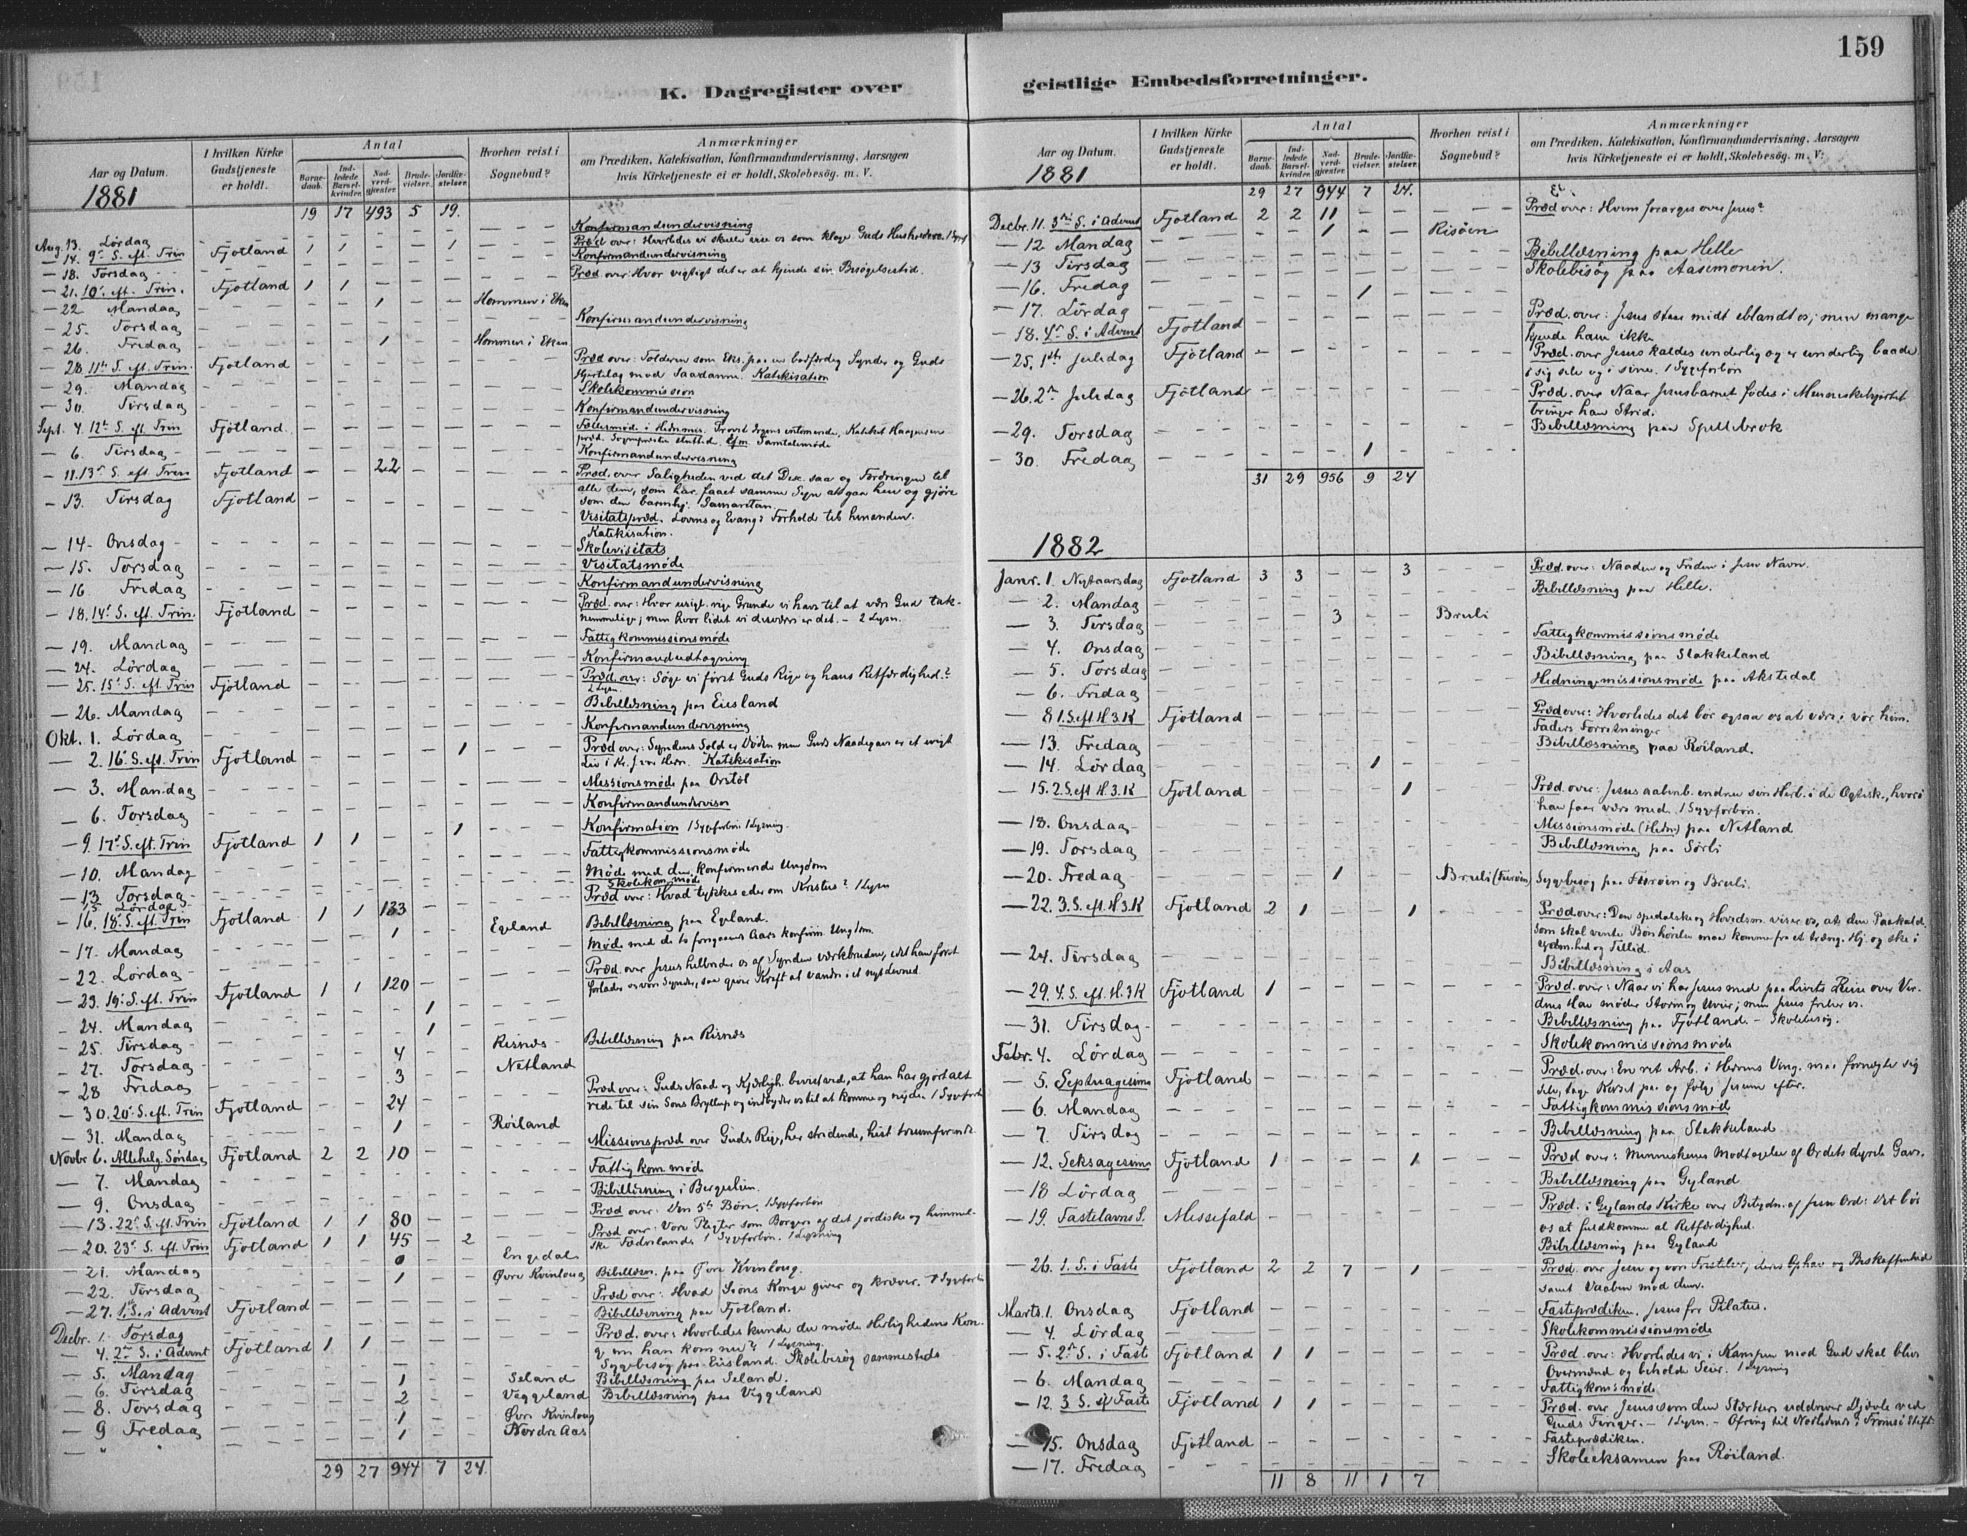 159
K. Dagregister over
Aar og Datum.
I hvilken Kirke Gudstjeneste er holdt.
Antal
Barnedaab.
Indledede Barselkvinder.
Nadverdgjester.
Brudevielser.
Jordfæstelser.
Hvorhen reist i Sognebud?
Anmærkninger
om Prædiken, Katekisation, Konfirmandundervisning, Aarsagen
hvis Kirketjeneste ei er holdt, Skolebesög. m. V.
1881
19 17 493 5 19.
Aug. 13. Lørdag Konfirmandundervisning
— 14. 9de S. eft. Trin Fjotland 1 1 1 Præd over: Hvorledes vi skulle
— 18. Torsdag Konfirmandundervisning
— 21. 10de eft. Trin. Fjotland 1 1 Præd over Hvor vigtigt det er at kjende sin Besøgelsestid.
— 22 Mandag 1 Hommen i Eken
— 25. Torsdag Konfirmandundervisning
— 26. Fredag 1 Hommen i Eken
— 28 11te S. eft. Trin. Fjotland Præd over: Tolderen som Eks. paa en bodfærdig Synder og Guds
Hjertelag mod Saadanne. Katekisation
— 29. Mandag Skolekommission
— 30. Tirsdag Konfirmandundervisning
Sept. 4. 12te S. eft. Trin Fjotland.
— 6. Tirsdag Konfirmandundervisning
— 11. 13de S. eft. Trin Fjotland 22 Præd. over Saligheden ved det Disc. saa og Fordringen til
alle dem, som har faaet samme Syn at gaa hen og gjøre
som den barmhj. Samaritan.
— 13. Tirsdag Fjotland Visitatspræd. Lovens og Evang's Forhold til hinanden.
Katekisation.
— 14. Onsdag Skolevisitats
— 15. Torsdag Visitatsmøde
— 16 Fredag Konfirmandundervisning
— 18. 14de S. eft. Trin. Fjotland Præd. over: Hvor
nemmelige; men hvor lidet vi desværre er det. – 2 Lysn.
— 19. Mandag Fattigkommissionsmøde
— 24. Lørdag Konfirmandudtagning
— 25. 15de S. eft. Trin Fjotland Præd over: Søge vi først Guds Rige og hans Retfærdighed?
2 Lysn.
— 26. Mandag Bibellæsning paa Eiesland
Okt. 1. Lørdag Konfirmandundervisning
— 2. 16de S. eft. Trin Fjotland 1 Præd over: Syndens Sold er Døden men Guds Naadegave er et evigt
Liv i Kr. J. vor Herre. Katekisation
— 3. Mandag Missionsmøde paa
— 6. Torsdag
— 9. 17de S. eft. Trin Fjotland 1 1 1 Konfirmation 1 Sygeforbøn 1 Lysning.
— 10. Mandag Fattigkommissionsmøde
— 13 Torsdag Møde med den konfirmerede Ungdom
15 Lørdag Skolekom. møde
— 16. 18de S. eft. Trin Fjotland 1 1 133 Præd over: Hvad tykkes eder om Kristus? 1 Lysn
— 17. Mandag 1 Egeland Bibellæsning paa Egeland.
— 22. Lørdag Møde med de to forgaaende Aars konfirm. Ungdom.
— 23. 19de S. eft. Trin Fjotland 1 1 120 Præd. over Jesus helbreder os af Synden
— 24. Mandag 1
— 25. Tirsdag 1
— 27. Torsdag 4 Risnæs Bibellæsning paa Risnæs
— 28 Fredag 3 Netland
— 30. 20de S. eft. Trin Fjotland 24 Præd over: Guds Naad og Kjærligh. beviist ved, at han har gjort alt
rede til sin Søns Bryllup og indbyder os til at komme og nyde
— 31. Mandag 1 Røiland
Novbr 6. Allehelg. Søndag Fjotland 2 2 10 Missionspræd over Guds Rige, her stridende, hist triumferende
— 7. Mandag Fattigkom. møde
— 9. Onsdag Bibellæsning i
— 13. 22de S. eft. Trin Fjotland 1 1 80 Præd over: Den 5te Bøn. 1 Sygeforbøn
— 20. 23de S. eft. Trin Fjotland 1 1 45 2 Præd over: Vore Pligter som Borgere af det jordiske og himmel-
ske Fædreland. 1 Sygeforbøn. 1 Lysning
— 21. Mandag Engedal
— 22. Tirsdag 1 Øvre Kvinloug Bibellæsn. paa Øvre Kvinloug.
— 27. 1ste S. i Advent Fjotland Præd over: Hvad Sions Konge giver og kræver.
Decbr. 1. Torsdag Bibellæsning paa Fjotland.
— 4. 2den S. i Advent Fjotland 1 1 Præd. over: Hvorledes kunde du møde Herlighedens Kon-
ge om han kom nu? 1 Lysning.
— 5. Mandag Sygebesøg paa Eiesland. Skolebesøg sammesteds
— 6. Tirsdag 1 Seland Bibellæsning paa Seland.
— 8. Torsdag 2 Veggeland Bibellæsning paa Veggeland
— 9 Fredag 1 Øvre Kvinloug
1 Nordre Aas
29 27 944 7 24.
geistlige Embedsforretninger.
Aar og Datum.
I hvilken Kirke Gudstjeneste er holdt.
Antal
Barnedaab.
Indledede Barselkvinder.
Nadverdgjester.
Brudevielser.
Jordfæstelser.
Hvorhen reist i Sognebud?
Anmærkninger
om Prædiken, Katekisation, Konfirmandundervisning, Aarsagen
hvis Kirketjeneste ei er holdt, Skolebesög. m. V.
1881
29 27 944 7 24.
Decbr. 11. 3die S. i Advent Fjotland 2 2 11 Præd over: Hvem forarges over Jesus?
— 12 Mandag 1 Risöen
— 13 Tirsdag Bibellæsning paa Helle
— 16. Fredag Skolebesøg paa Aasemonen.
— 17. Lørdag 1
— 18. 4de S. i Advent Fjotland Præd. over: Jesus staar midt iblandt os; men mange
kjende ham ikke
— 25. 1ste Juledag Fjotland Præd. over Jesus kaldes underlig og er underlig baade
i sig selv og i sine. 1 Sygeforbøn
— 26. 2den Juledag Fjotland Præd. over Naar Jesusbarnet fødes i Menneskehjertet
bringer han Strid.
— 29. Torsdag Bibellæsning paa Spellebrok
— 30. Fredag 1
31 29 956 9 24
1882
Janr. 1. Nytaarsdag Fjotland 3 3 3 Præd. over: Naaden og Friden i Jesu Navn.
— 2. Mandag Bibellæsning paa Helle.
— 3. Tirsdag 3 Bruli
— 4. Onsdag Fattigkommissionsmøde
— 5. Torsdag Bibellæsning paa Stakkeland
— 6. Fredag Hedningemissionsmøde paa Akstedal
— 8 1. S. eft H 3. K Fjotland Præd over: Hvorledes det bør ogsaa os at være i vor him.
Faders Forretninger
— 13. Fredag Bibellæsning paa Røiland.
— 14. Lørdag 1
— 15. 2. S. eft H. 3. K Fjotland 1 Præd. over: Jesus aabenb. endnu sin Herl. i de Ægtesk., hvori
han faar være med. 1 Sygeforbøn.
— 18. Onsdag Missionsmøde (Hedn) paa Netland
— 19. Torsdag Bibellæsning paa Sørli
— 20. Fredag 1 Bruli Sygebesøg paa Furøen og Bruli.
— 22. 3. S. eft. H. 3. K Fjotland 2 1 1 Præd over: Den spedalske og Høvedsm. viser os, at den Paakald.
som skal vente Bønhørelse maa komme fra et træng. Hj. og ske i
Ydmhed og Tillid.
— 24. Tirsdag Bibellæsning i Aas
— 29. 4. S. eft. H. 3 K Fjotland 1 Præd. over: Naar vi har Jesus med paa Livets Reise over Ver-
dens Hav møder Storm og Uveir; men Jesus frelser os.
— 31. Tirsdag Bibellæsning paa Fjotland. – Skolebesøg.
Febr. 4. Lørdag Skolekommissionsmøde
— 5. Septuagesima Fjotland Præd. over: En ret Arb. i Herrens Ving. maa fornegte sig
selv, tage Korset paa og følge Jesum efter.
— 6. Mandag Fattigkommissionsmøde
— 7. Tirsdag Bibellæsning paa Stakkeland
— 12. Seksagesima Fjotland 1 1 Præd over: Menneskenes Modtagelse af Ordets dyreb. Gave.
— 18 Lørdag Bibellæsning paa Gyland
— 19. Fastelavns S. Messefald Præd. i Gylands Kirke over Betydn. af Jesu Ord: Det bør
os at fuldkomme al Retfærdighed.
Bibellæsning paa Gyland
— 26. 1. S. i Faste Fjotland 2 2 7 1 Præd. over Jesu og vore Fristelser, deres Ophav og Beskaffenhed
samt Vaaben mod dem.
Marts. 1. Onsdag Fjotland Fasteprædiken. Jesus for Pilatus.
— 4. Lørdag Skolekommissionsmøde
— 5. 2den S. i Faste Fjotland 1 1 Præd. over: Hvorledes vi i Kampen med Gud skal blive
Overmænd og beholde Seier. 1 Lysning
— 6. Mandag Fattigkoms møde
— 12. 3 S. i Faste Fjotland 1 1 Præd. over Jesus som den Stærkere uddriver Djævle ved
Guds Finger. – 1 Lysn. – Ofring til Nødlidende i Tromsø Stift
— 15. Onsdag Fjotland Fasteprædiken.
— 17. Fredag Skoleeksamen paa Røiland.
11 8 11 1 7